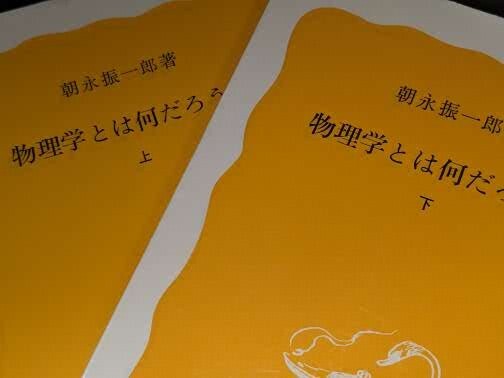 朝永振一郎著
物理学とは何だろう
上
朝永振一郎
物理学とは何だろ
下